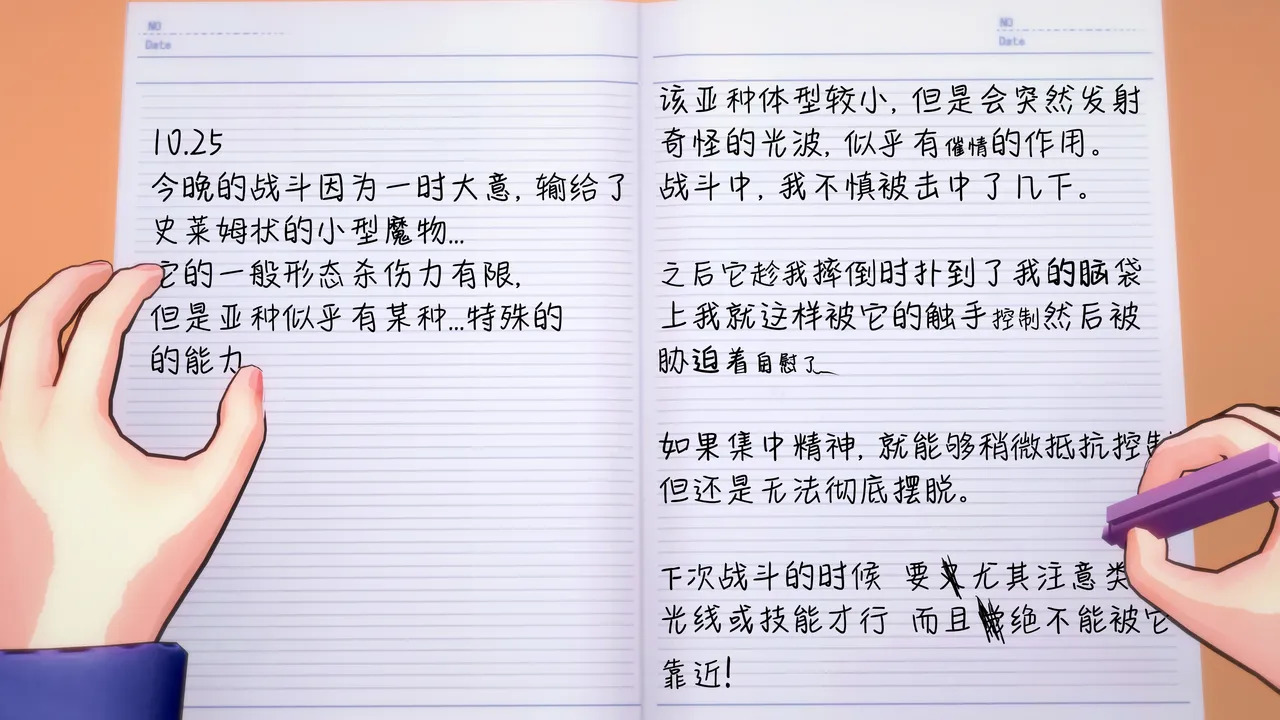 NO
Date
10.25
今晚的战斗因为一时大意，输给了
史莱姆状的小型魔物...
它的一般形态杀伤力有限，
但是亚种似乎有某种...特殊的
的能力
NO
Date
该亚种体型较小，但是会突然发射
奇怪的光波，似乎有催情的作用。
战斗中，我不慎被击中了几下。
之后它趁我摔倒时扑到了我的脑袋
上我就这样被它的触手控制然后被
胁迫着自慰了
如果集中精神，就能够稍微抵抗控制
但还是无法彻底摆脱。
下次战斗的时候 要尤其注意类
光线或技能才行 而且绝不能被它
靠近！